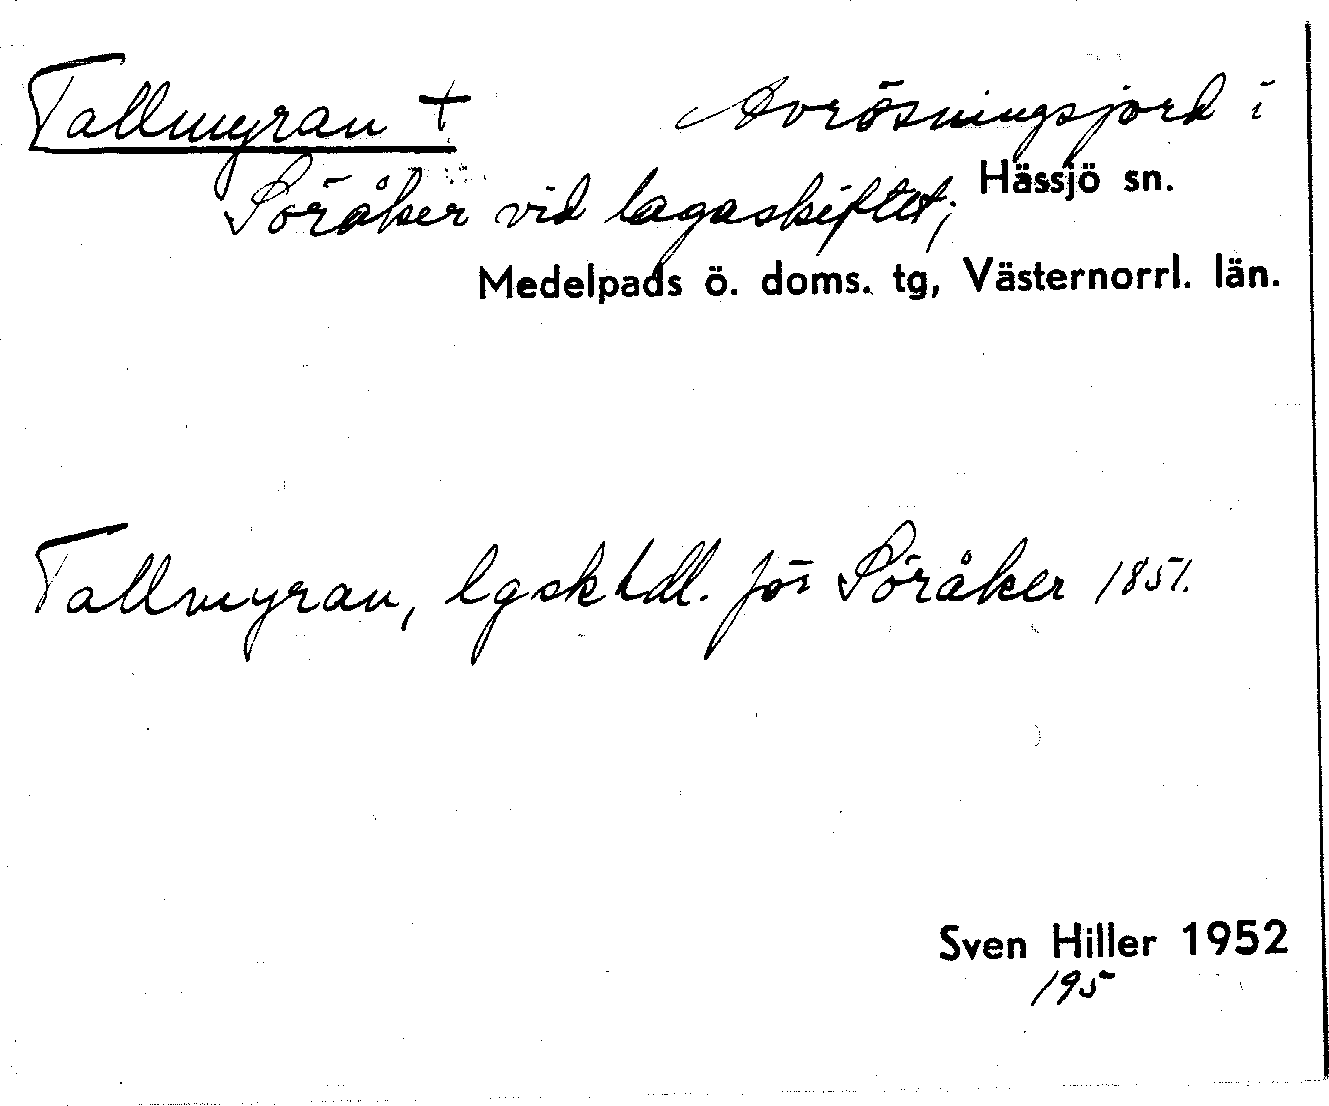 Tallmyran + Avrösningsjord i
Söråker vid lagaskiftet; Hässjö sn.
Medelpads ö. doms. tg, Västernorrl. län.
Tallmyran, lgskhdl. för Söråker 1851.
Sven Hiller 1952
195